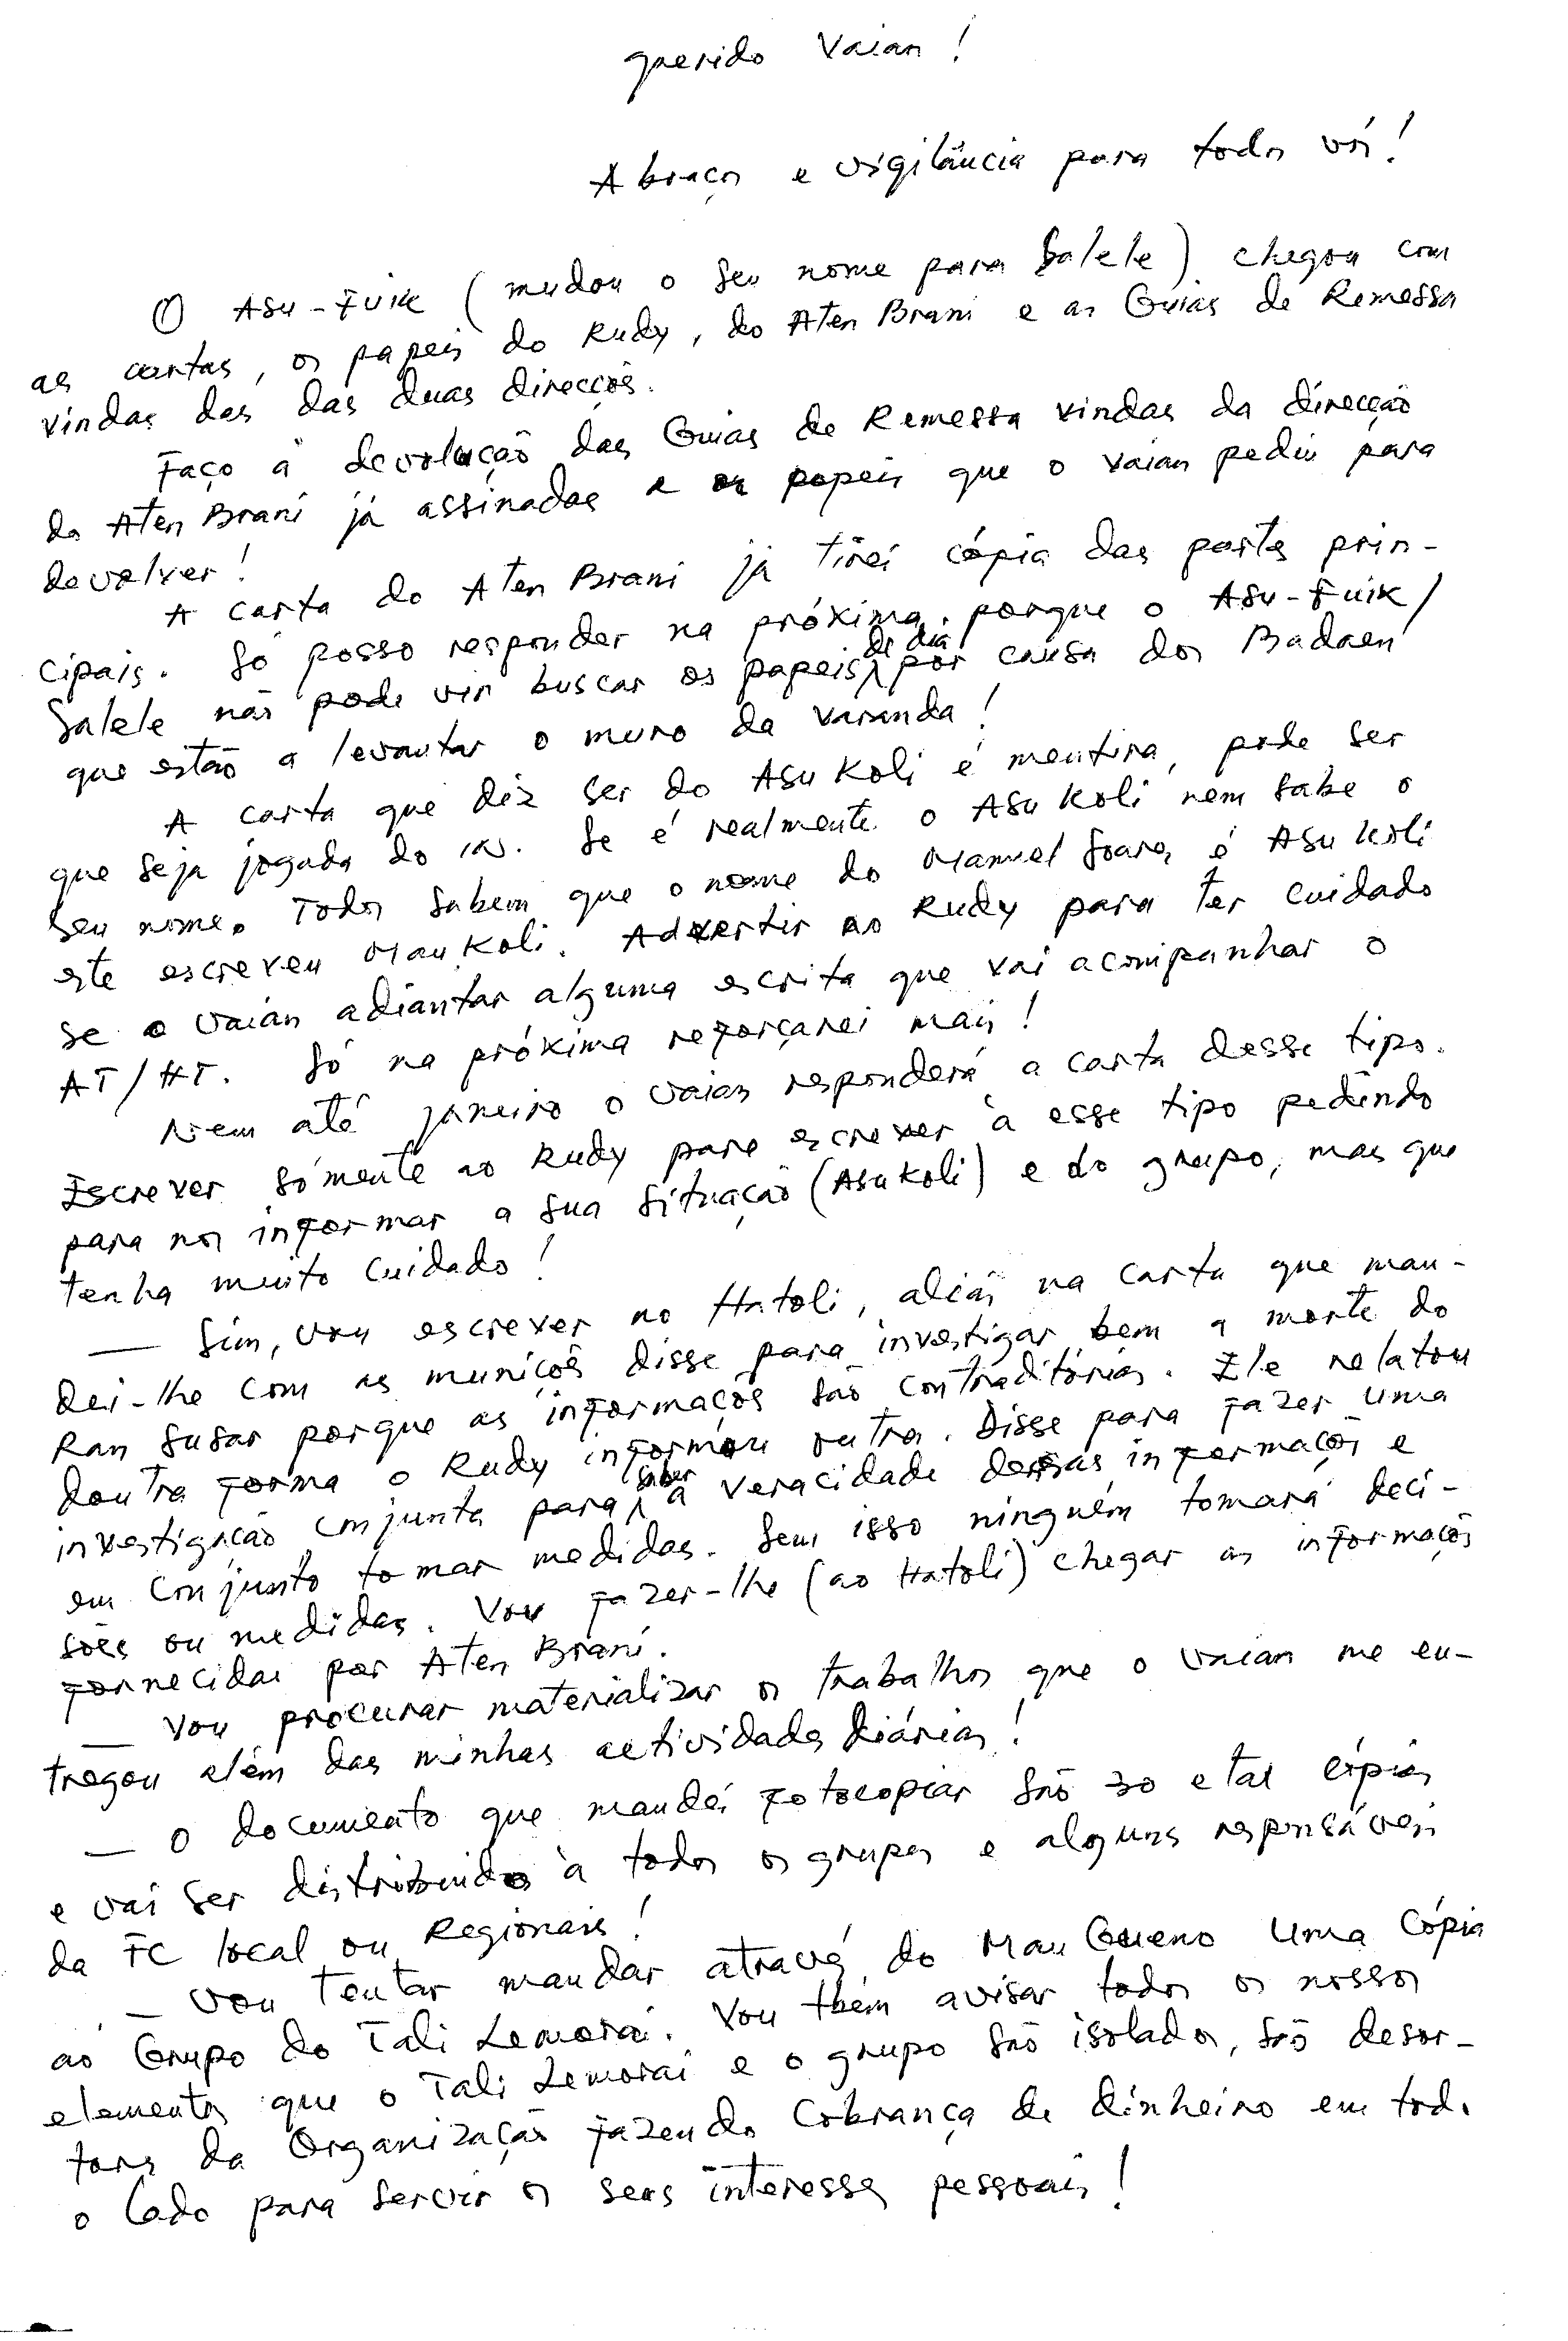 querido Vaian!
Abraços e vigilância para todos vós!
O Asu-Fuik (mudou o seu nome para Salele) chegou com
as cartas, os papeis do Rudy, do Aten Brani e as Guias de Remessa
vindas das das duas direcções.
Faço a devolução das Guias de Remessa vindas da direcção
do Aten Brani já assinadas e os papeis que o Vaian pediu para
devolver!
A carta do Aten Brani já tirei cópia das partes prin-
cipais. Só posso responder na próxima, porque o Asu-Fuik/
Salele não pode vir buscar os papeis de dia por causa dos Badaen
que estão a levantar o muro da varanda!
A carta que diz ser do Asu Koli é mentira, pode ser
que seja jogada do in. Se é realmente o Asu Koli nem sabe o
seu nome. Todos sabem que o nome do Manuel Soares é Asu Koli
este escreveu Mau Koli. Advertir ao Rudy para ter cuidado
se o Vaian adiantar alguma escrita que vai acompanhar o
AT/HT. Só na próxima reforçarei mais!
Nem até janeiro o Vaian responderá a carta desse tipo.
Escrever sómente ao Rudy para escrever à esse tipo pedindo
para nos informar a sua situação (Asu Koli) e do grupo, mas que
tenha muito cuidado!
— Sim, vou escrever ao Hatoli, aliás na carta que man-
dei-lhe com as munições disse para investigar bem a morte do
Ran Susar porque as informações são contraditórias. Ele relatou
doutra forma o Rudy informou outra. Disse para fazer uma
investigação conjunta para saber a veracidade dessas informações e
em conjunto tomar medidas. Sem isso ninguém tomará deci-
sões ou medidas. Vou fazer-lhe (ao Hatoli) chegar as informações
fornecidas por Aten Brani.
— Vou procurar materializar os trabalhos que o Vaian me en-
tregou além das minhas actividades diárias!
— O documento que mandei fotocopiar são 30 e tal cópias
e vai ser distribuido à todos os grupos e alguns responsáveis
da FC local ou Regionais!
— Vou tentar mandar através do Mau Gueno uma cópia
ao Grupo do Tali Lemorai. Vou tbém avisar todos os nossos
elementos que o Tali Lemorai e o grupo são isolados, são deser-
tores da Organização fazendo cobrança de dinheiro em todo
o lado para servir os seus interesses pessoais!